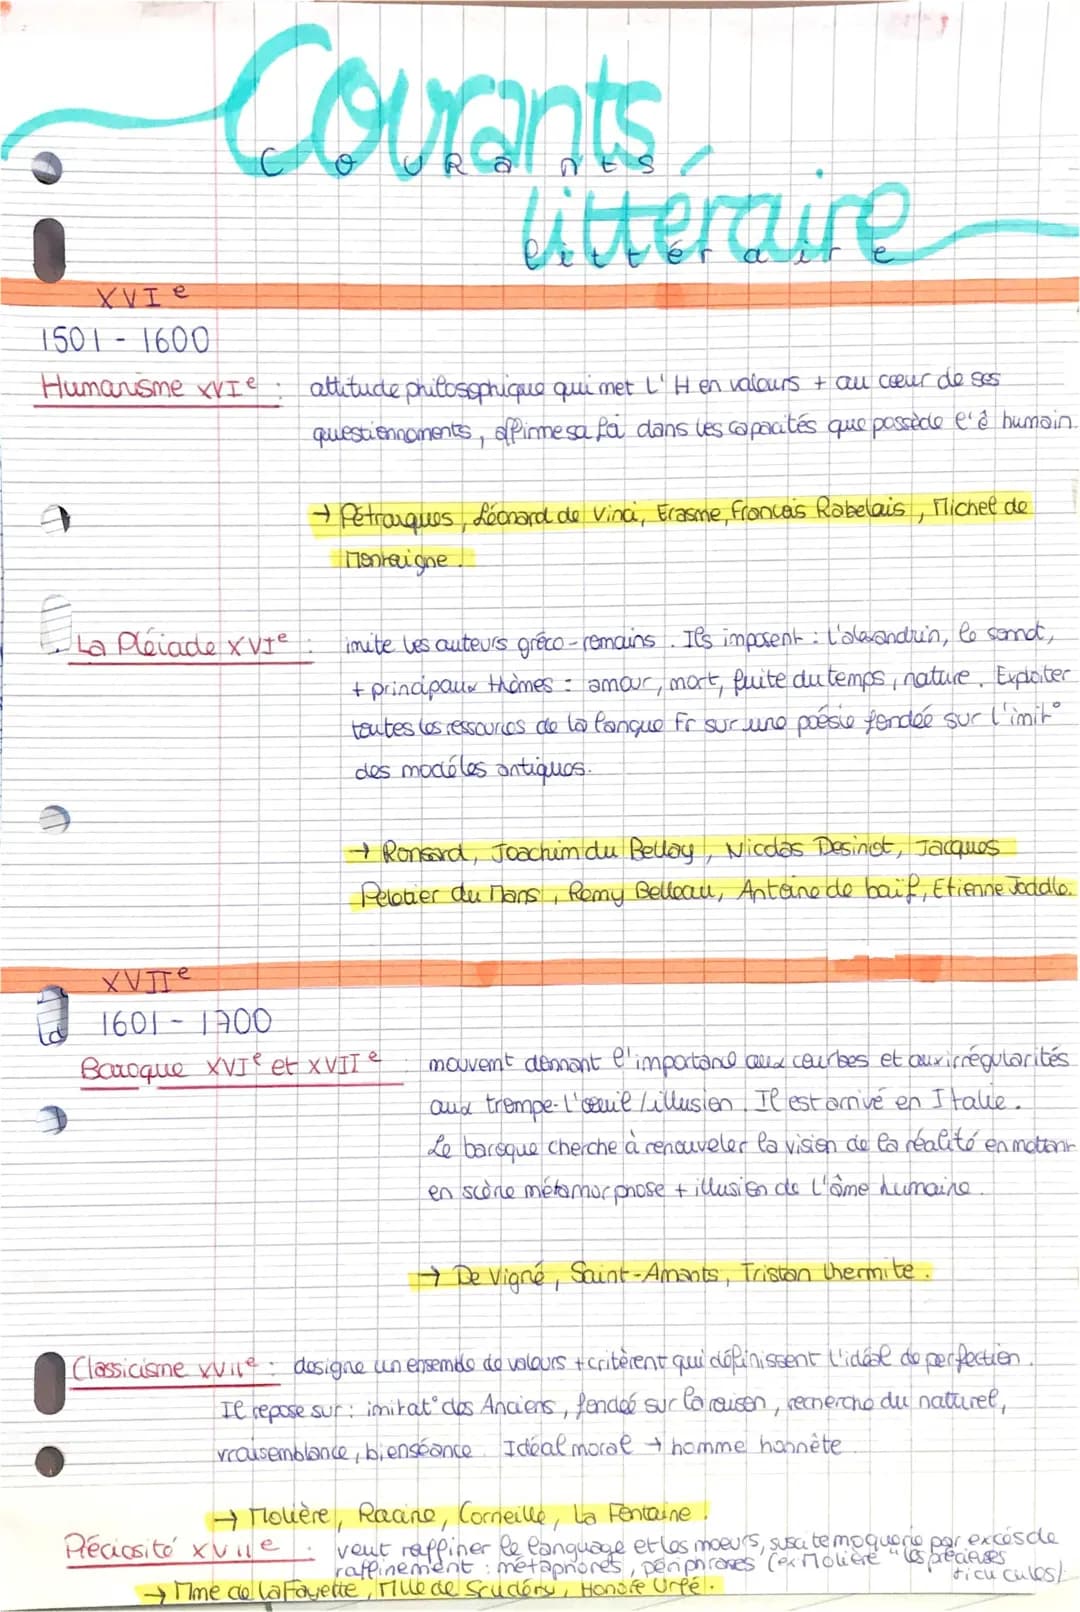 Courants
C O U R a n t s
littéraire
littéraire
XVI e
1501 - 1600
Humanisme XVI e : attitude philosophique qui met L'H en valeurs + au cœur de ses
questionnoments, affirme sa foi dans les capacités que possède l'ê humain.
→ Pétrarques, Léonard de Vinci, Erasme, Francois Rabelais, Michel de
Montaigne.
La Pléiade XVI e : imite les auteurs gréco-romains. Ils imposent : l'alexandrin, le sonnet,
+ principaux thèmes = amour, mort, fuite du temps, nature. Exploiter
toutes les ressources de la langue Fr sur une poésie fondée sur l'imit°
des modèles antiques.
→ Ronsard, Joachim du Bellay, Nicolas Desinot, Jacques
Peletier du Mans, Remy Belleau, Antoine de baïf, Etienne Joddle.
XVII e
1601 - 1700
Baroque XVI e et XVII e : mouvent donnant l'importance aux courbes et aux irrégularités
aux trompe-l'oeuil / illusion. Il est arrivé en Italie.
Le baroque cherche à renouveler la vision de la réalité en mettant
en scène métamorphose + illusion de l'âme humaine.
→ De Vigné, Saint-Amants, Tristan lhermite.
Classicisme XVII e : designe un ensemble de valeurs + critèrent qui définissent l'idéal de perfection.
Il repose sur : imitat° des Anciens, fondée sur la raison, recherche du naturel,
vraisemblance, bienséance. Idéal moral → homme honnête
→ Molière, Racine, Corneille, La Fontaine.
Préciosité XVII e : veut raffiner le language et les moeurs, suscite moquerie par excès de
raffinement : métaphores, périphrases (ex Molière "les précieuses
ridicules)
→ Mme de la Fayette, Mlle de Scudéry, Honoré Urfé.